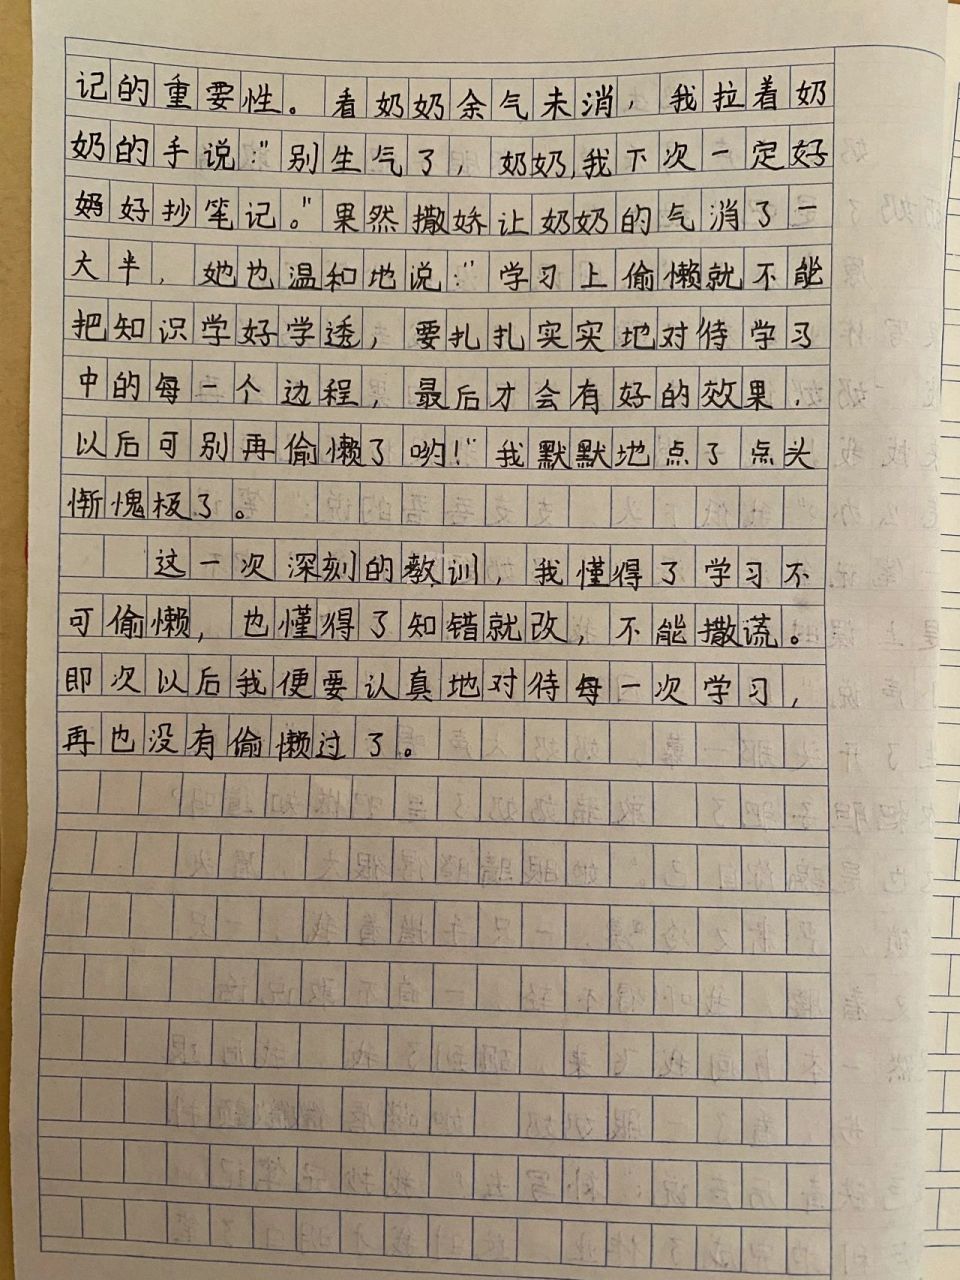 记的重要性。看奶奶余气未消，我拉着奶
奶的手说："别生气了，奶奶,我下次一定好
好好抄笔记。"果然撒娇让奶奶的气消了一
大半，她也温和地说："学习上偷懒就不能
把知识学好学透，要扎扎实实地对待学习
中的每一个边程，最后才会有好的效果，
以后可别再偷懒了哟！"我默默地点了点头
惭愧极了。
这一次深刻的教训，我懂得了学习不
可偷懒，也懂得了知错就改，不能撒谎。
即次以后我便要认真地对待每一次学习，
再也没有偷懒过了。